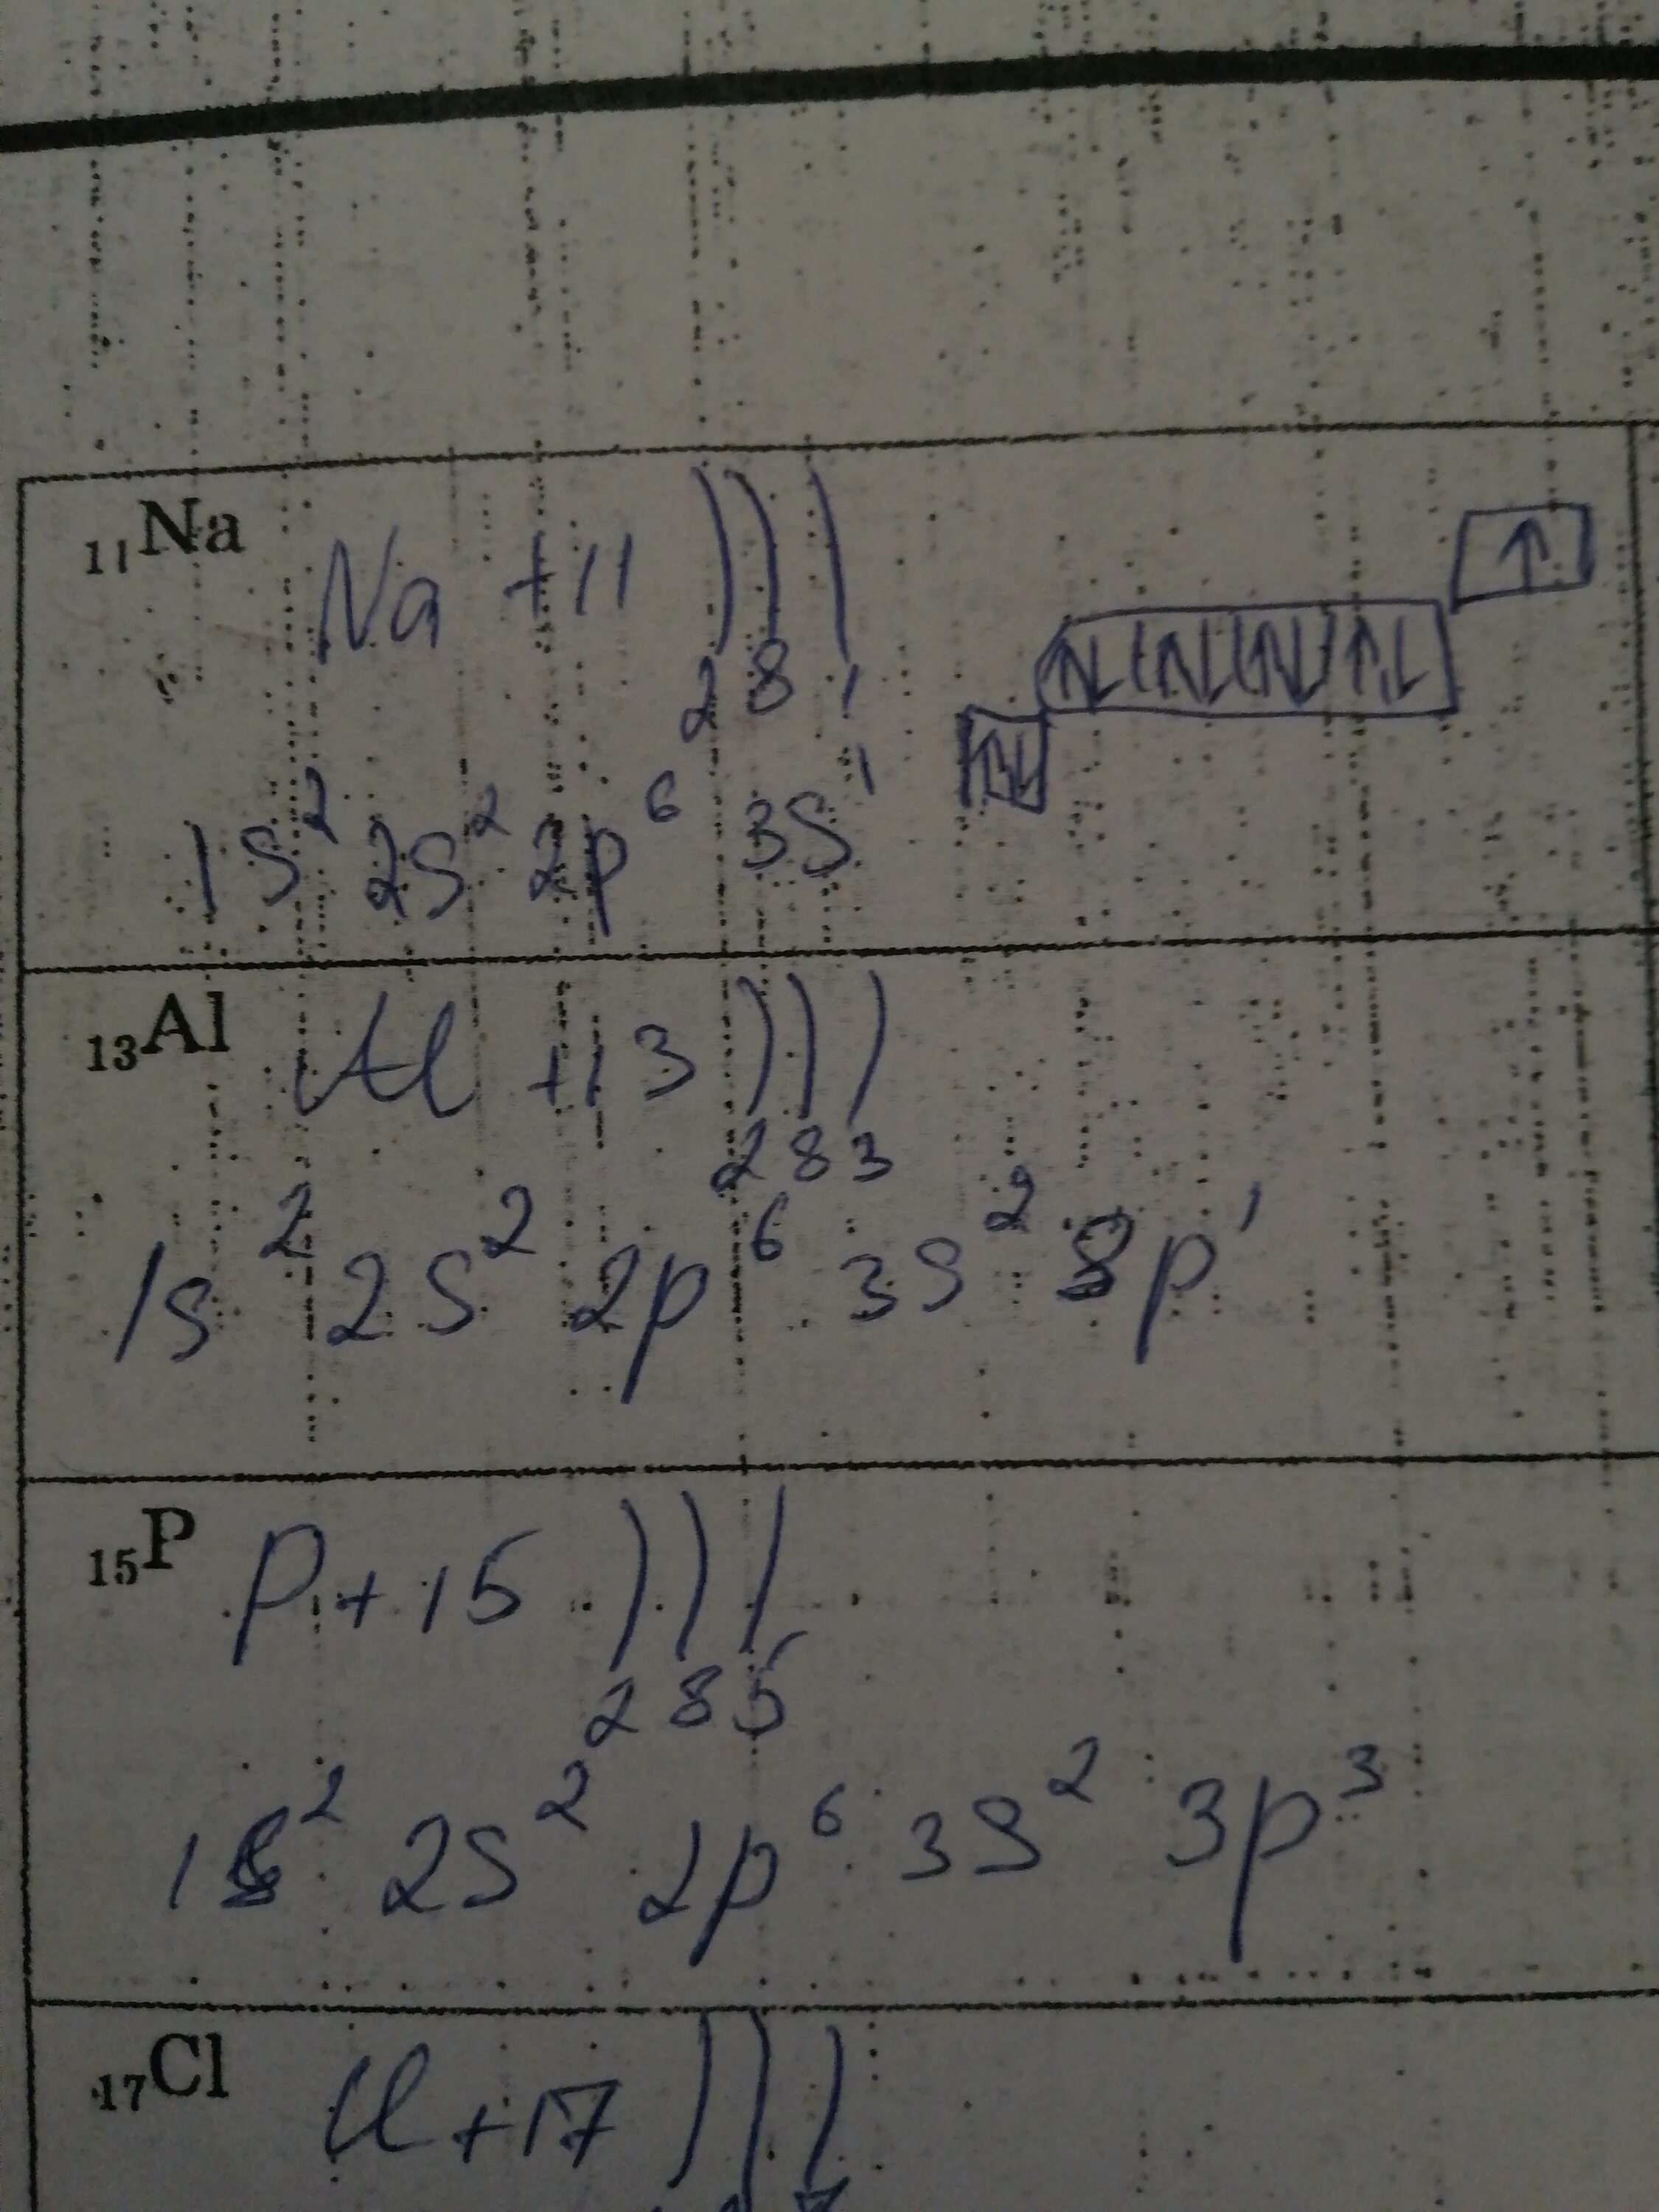 ₁₁Na Na +11 )))
2 8 1
1s² 2s² 2p⁶ 3s¹
₁₃Al Al +13 )))
2 8 3
1s² 2s² 2p⁶ 3s² 3p¹
₁₅P P +15 )))
2 8 5
1s² 2s² 2p⁶ 3s² 3p³
₁₇Cl Cl +17 )))
7